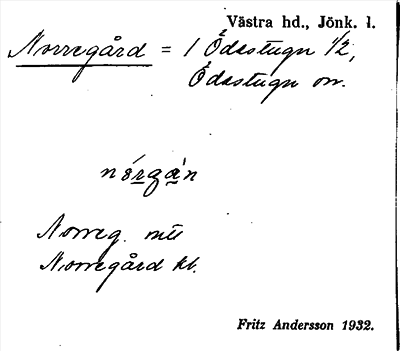 Västra hd., Jönk. l.
Norregård = 1 Ödestugn 1/2,
Ödestugn sn.
nórgàn
Norreg. mü
Norregård kt.
Fritz Andersson 1932.